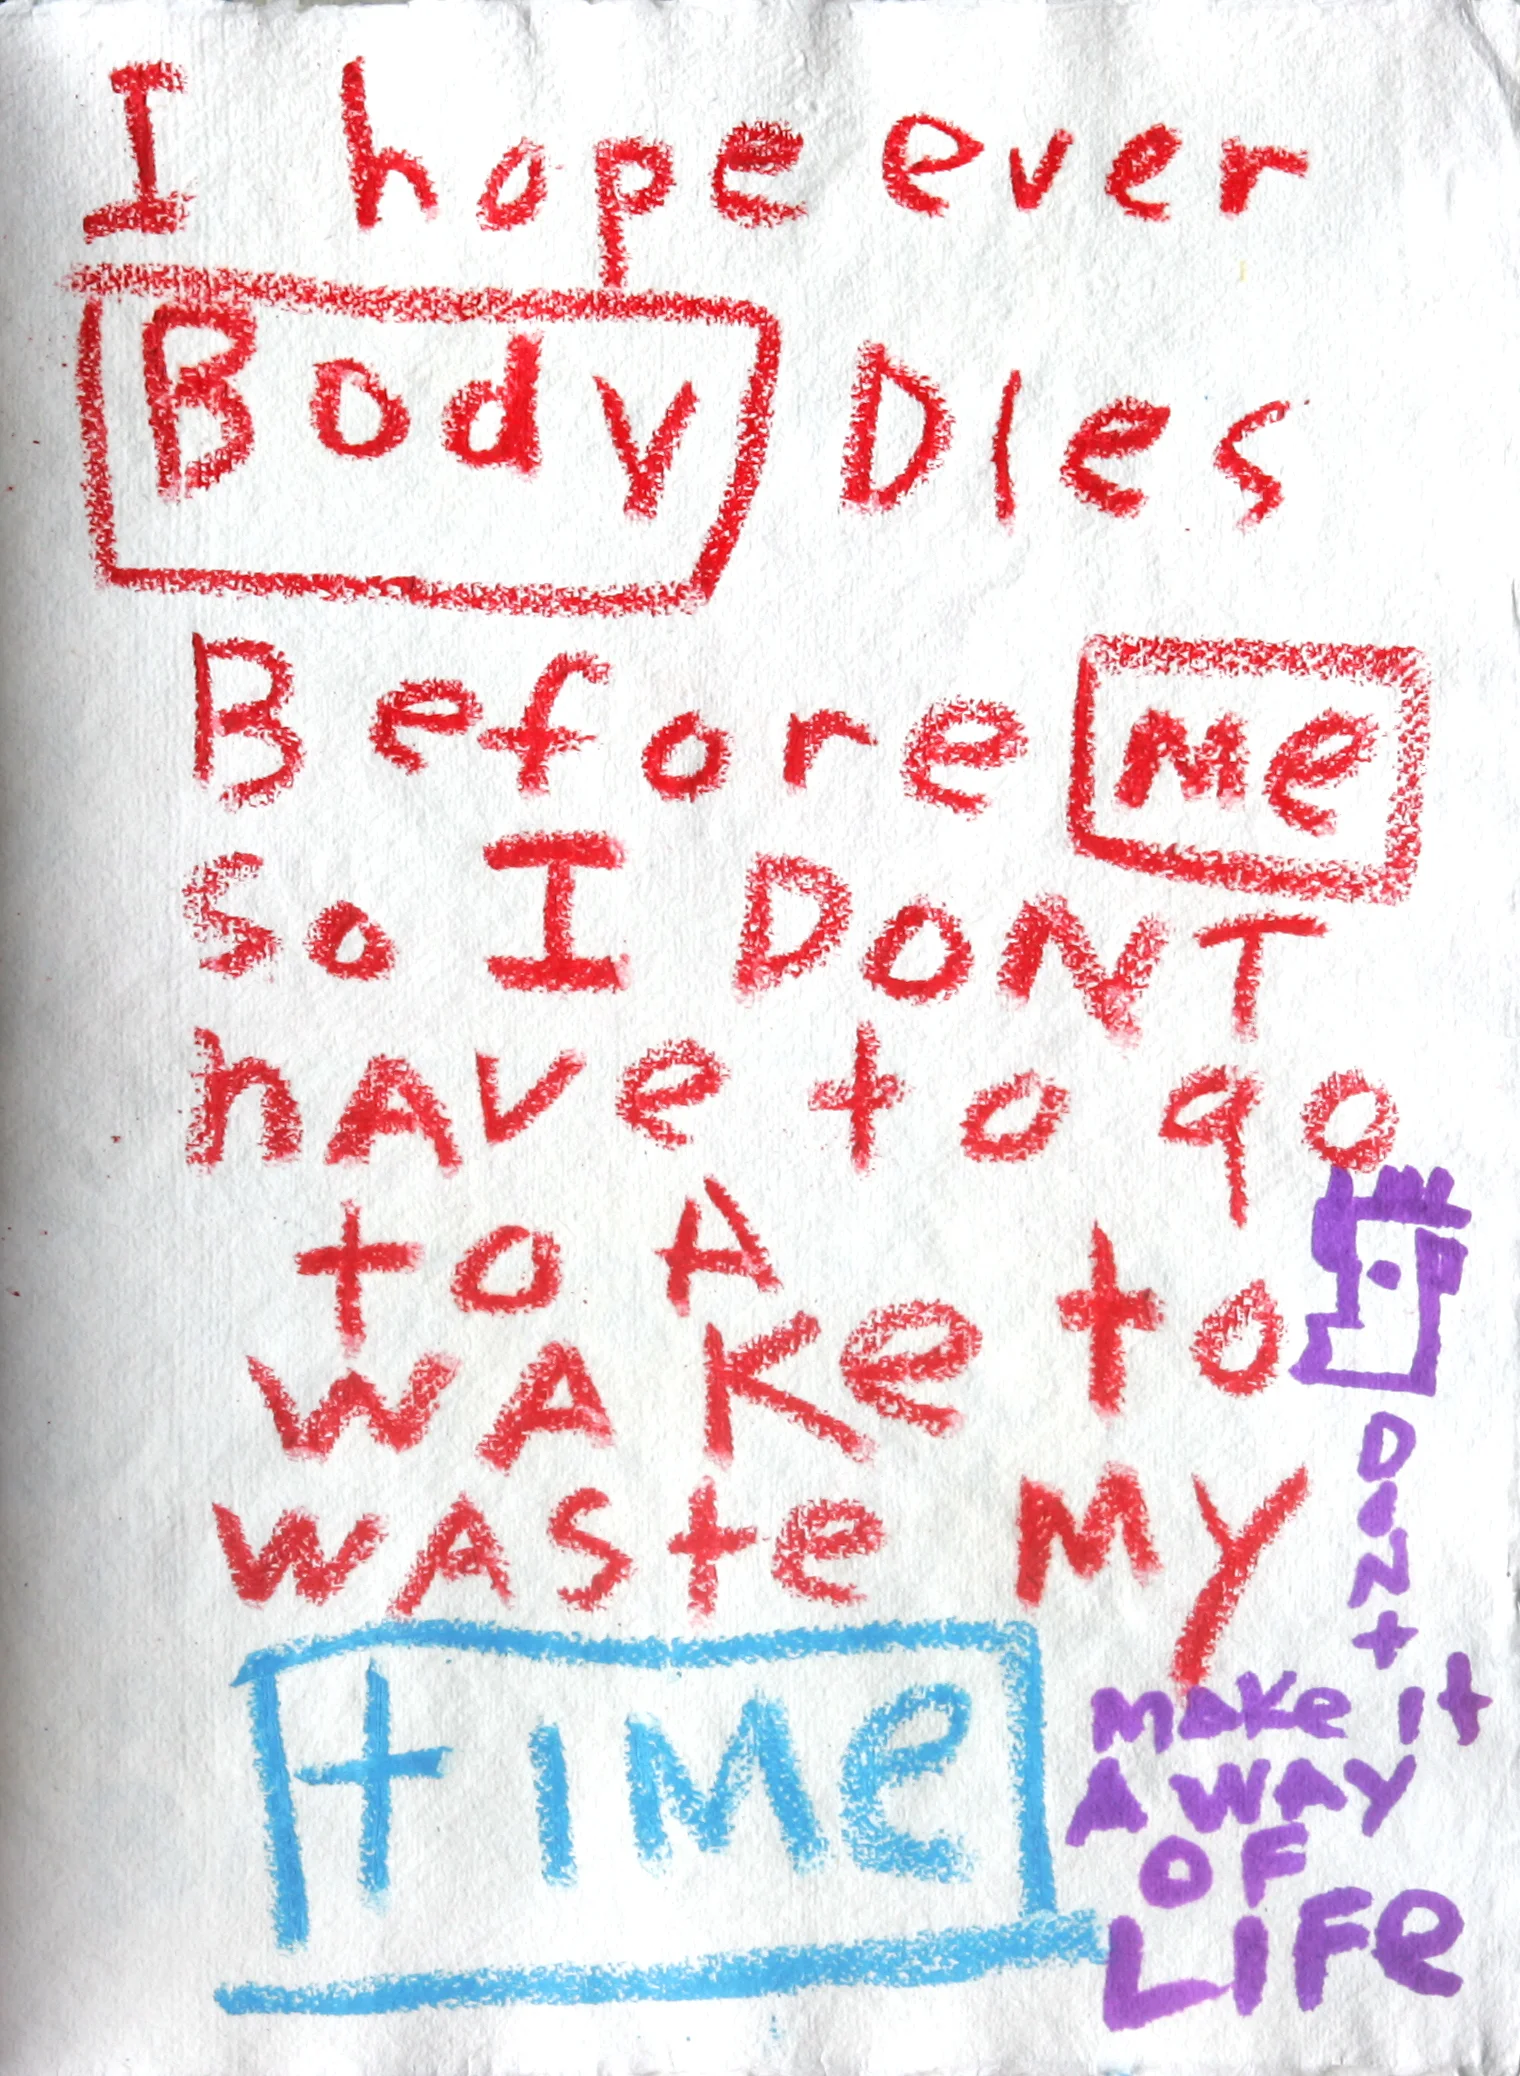 I hope ever
Body DIes
Before me
So I DONT
hAve to go
to A
wAKe to
wASte MY
tIMe
DON+
MaKe It
A WAY
OF
LIFe